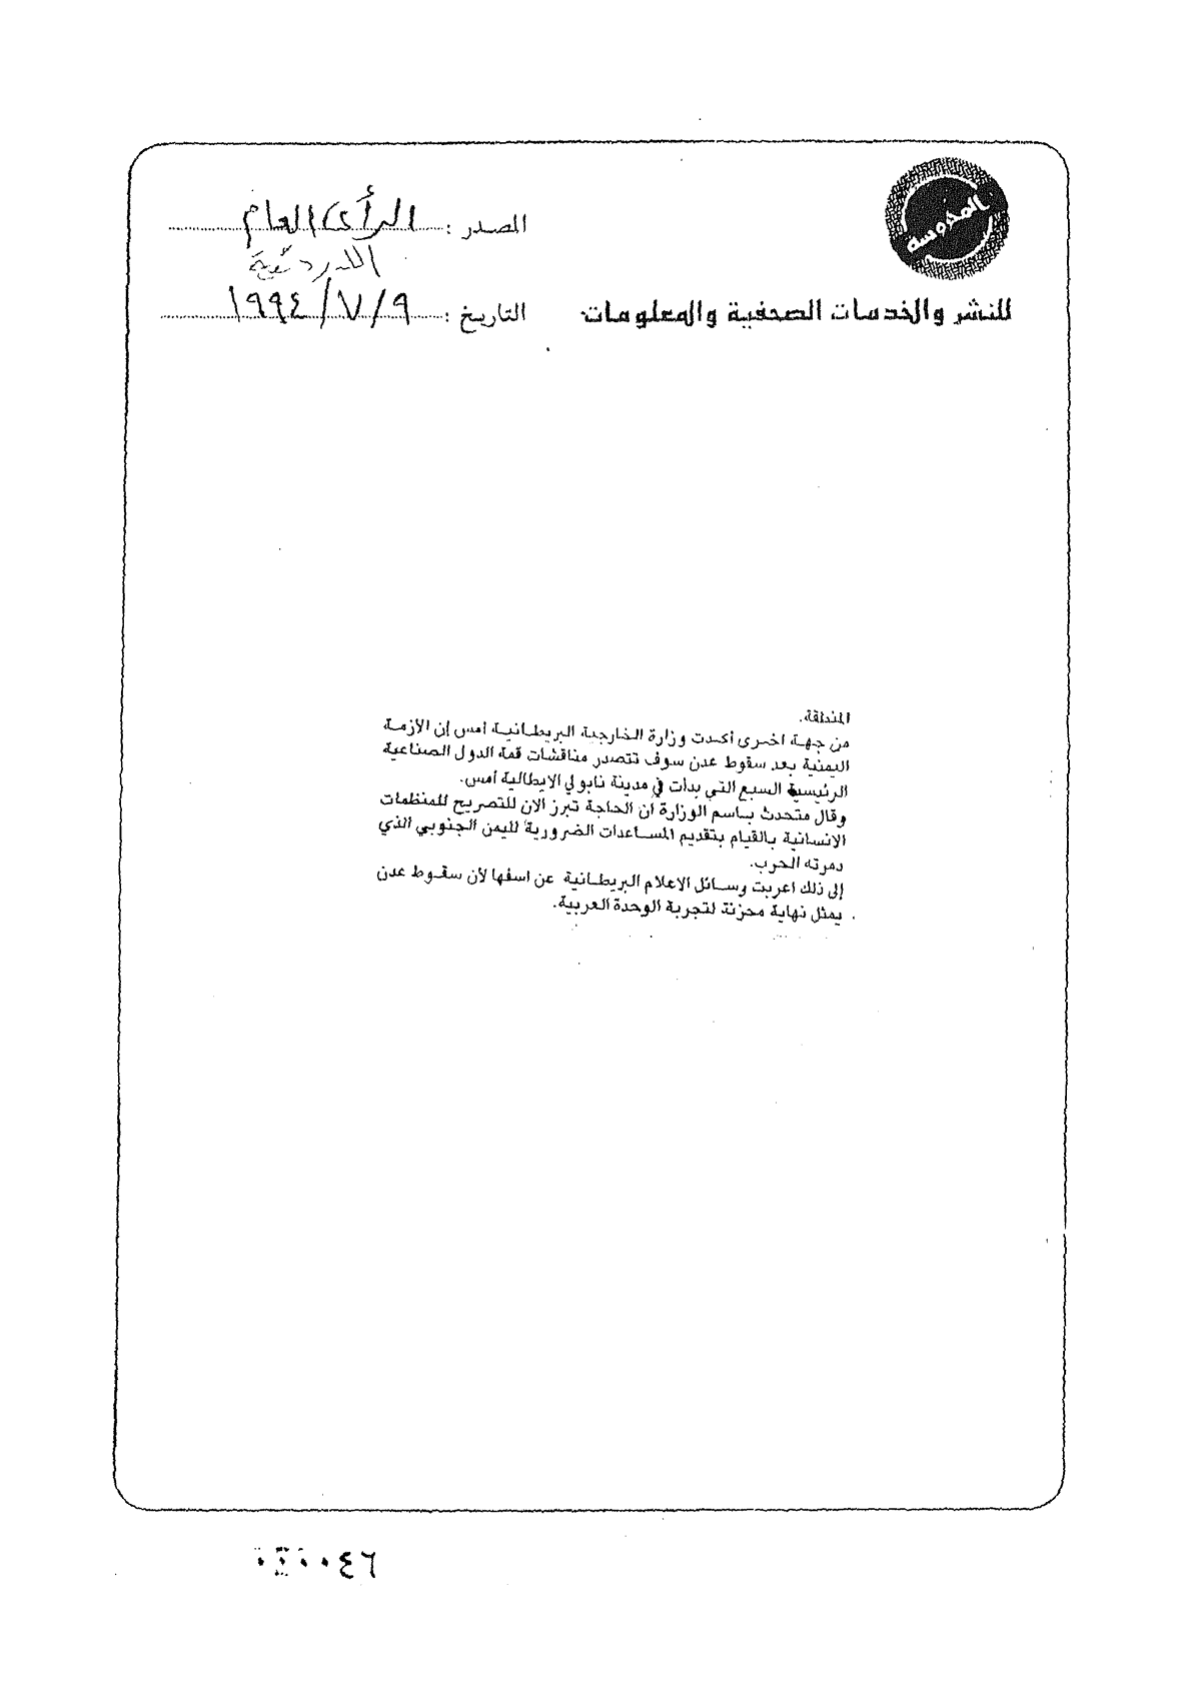 المحروسة
للنشر والخدمات الصحفية والمعلومات
المصدر : الرأى العام
التاريخ : ٩ / ٧ / ١٩٩٤
المنطقة.
من جهة اخرى أكدت وزارة الخارجية البريطانية أمس إن الأزمة
اليمنية بعد سقوط عدن سوف تتصدر مناقشات قمة الدول الصناعية
الرئيسية السبع التي بدأت في مدينة نابولي الايطالية أمس.
وقال متحدث باسم الوزارة ان الحاجة تبرز الان للتصريح للمنظمات
الانسانية بالقيام بتقديم المساعدات الضرورية لليمن الجنوبي الذي
دمرته الحرب.
إلى ذلك اعربت وسائل الاعلام البريطانية عن اسفها لأن سقوط عدن
يمثل نهاية محزنة لتجربة الوحدة العربية.